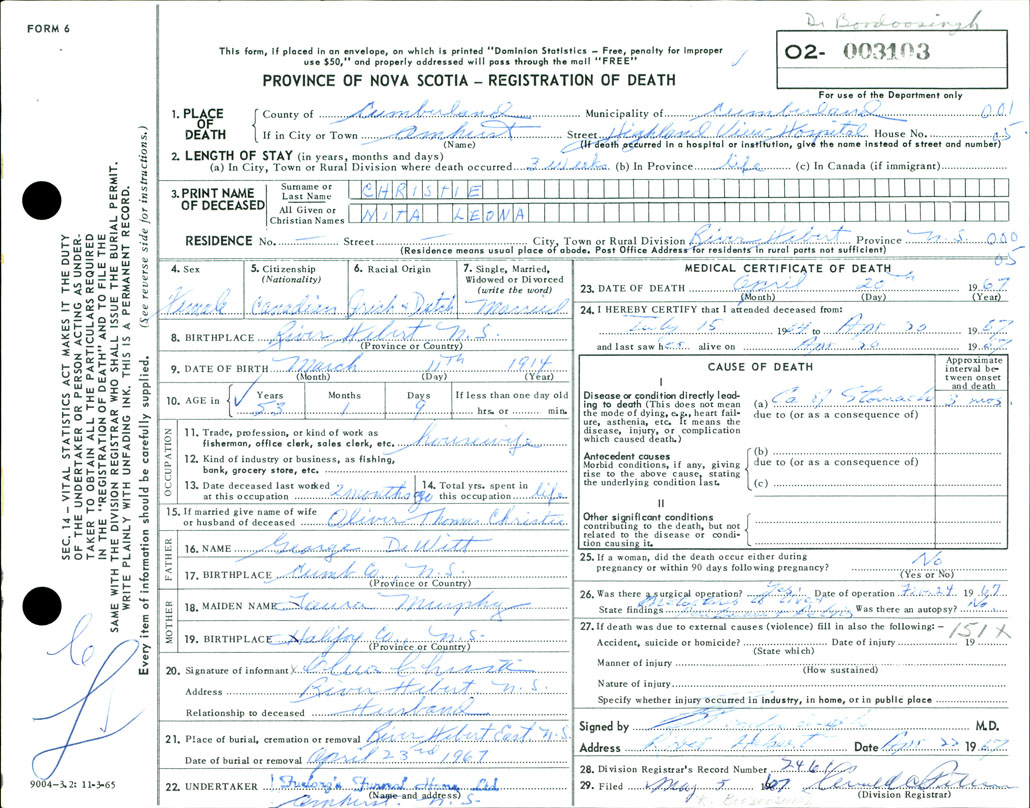 FORM 6
Dr Bordoosingh
This form, if placed in an envelope, on which is printed "Dominion Statistics – Free, penalty for improper
use $50," and properly addressed will pass through the mail "FREE"
PROVINCE OF NOVA SCOTIA – REGISTRATION OF DEATH
02- 003103
For use of the Department only
1. PLACE OF DEATH
County of Cumberland Municipality of Cumberland 001
If in City or Town Amherst Street Highland View Hospital House No. 05
(Name) (If death occurred in a hospital or institution, give the name instead of street and number)
2. LENGTH OF STAY (in years, months and days)
(a) In City, Town or Rural Division where death occurred 3 weeks (b) In Province life (c) In Canada (if immigrant)
3. PRINT NAME OF DECEASED
Surname or Last Name CHRISTIE
All Given or Christian Names NITA LEONA
RESIDENCE No. – Street – City, Town or Rural Division River Hebert Province N.S. 000
(Residence means usual place of abode. Post Office Address for residents in rural parts not sufficient) 05
4. Sex Female
5. Citizenship (Nationality) Canadian
6. Racial Origin Irish & Dutch
7. Single, Married, Widowed or Divorced (write the word) Married
8. BIRTHPLACE River Hebert N.S.
(Province or Country)
9. DATE OF BIRTH March 11th 1914
(Month) (Day) (Year)
10. AGE in Years 53 Months 1 Days 9 If less than one day old
hrs. or min.
OCCUPATION
11. Trade, profession, or kind of work as
fisherman, office clerk, sales clerk, etc. housewife
12. Kind of industry or business, as fishing,
bank, grocery store, etc.
13. Date deceased last worked
at this occupation 2 months ago
14. Total yrs. spent in
this occupation life
15. If married give name of wife
or husband of deceased Oliver Thomas Christie
FATHER
16. NAME George DeWitt
17. BIRTHPLACE Cumb Co., N.S.
(Province or Country)
MOTHER
18. MAIDEN NAME Laura Murphy
19. BIRTHPLACE Halifax Co., N.S.
(Province or Country)
20. Signature of informant X Christie
Address River Hebert N.S.
Relationship to deceased Husband
21. Place of burial, cremation or removal River Hebert East N.S.
Date of burial or removal April 23rd 1967
22. UNDERTAKER Funeral Home Ltd
(Name and address)
Amherst. N.S.
MEDICAL CERTIFICATE OF DEATH
23. DATE OF DEATH April 20th 1967
(Month) (Day) (Year)
24. I HEREBY CERTIFY that I attended deceased from:
July 15 1964 to Apr 20 1967
and last saw her alive on Apr 20 1967
CAUSE OF DEATH
Approximate interval between onset and death
I
Disease or condition directly leading to death (This does not mean the mode of dying, e.g., heart failure, asthenia, etc. It means the disease, injury, or complication which caused death.)
(a) Ca of Stomach 3 mos
due to (or as a consequence of)
Antecedent causes
Morbid conditions, if any, giving rise to the above cause, stating the underlying condition last.
(b)
due to (or as a consequence of)
(c)
II
Other significant conditions
contributing to the death, but not related to the disease or condition causing it.
25. If a woman, did the death occur either during
pregnancy or within 90 days following pregnancy? No
(Yes or No)
26. Was there a surgical operation? Yes Date of operation Feb. 24 1967
State findings Was there an autopsy? No
27. If death was due to external causes (violence) fill in also the following: – 151X
Accident, suicide or homicide? Date of injury 19
(State which)
Manner of injury
(How sustained)
Nature of injury
Specify whether injury occurred in industry, in home, or in public place
Signed by M.D.
Address River Hebert Date Apr 22 1967
28. Division Registrar's Record Number 2461
29. Filed May 5 1967
(Division Registrar)
SEC. 14 – VITAL STATISTICS ACT MAKES IT THE DUTY
OF THE UNDERTAKER OR PERSON ACTING AS UNDER-
TAKER TO OBTAIN ALL THE PARTICULARS REQUIRED
IN THE "REGISTRATION OF DEATH" AND TO FILE THE
SAME WITH THE DIVISION REGISTRAR WHO SHALL ISSUE THE BURIAL PERMIT.
WRITE PLAINLY WITH UNFADING INK. THIS IS A PERMANENT RECORD.
Every item of information should be carefully supplied. (See reverse side for instructions.)
9004-3.2: 11-3-65